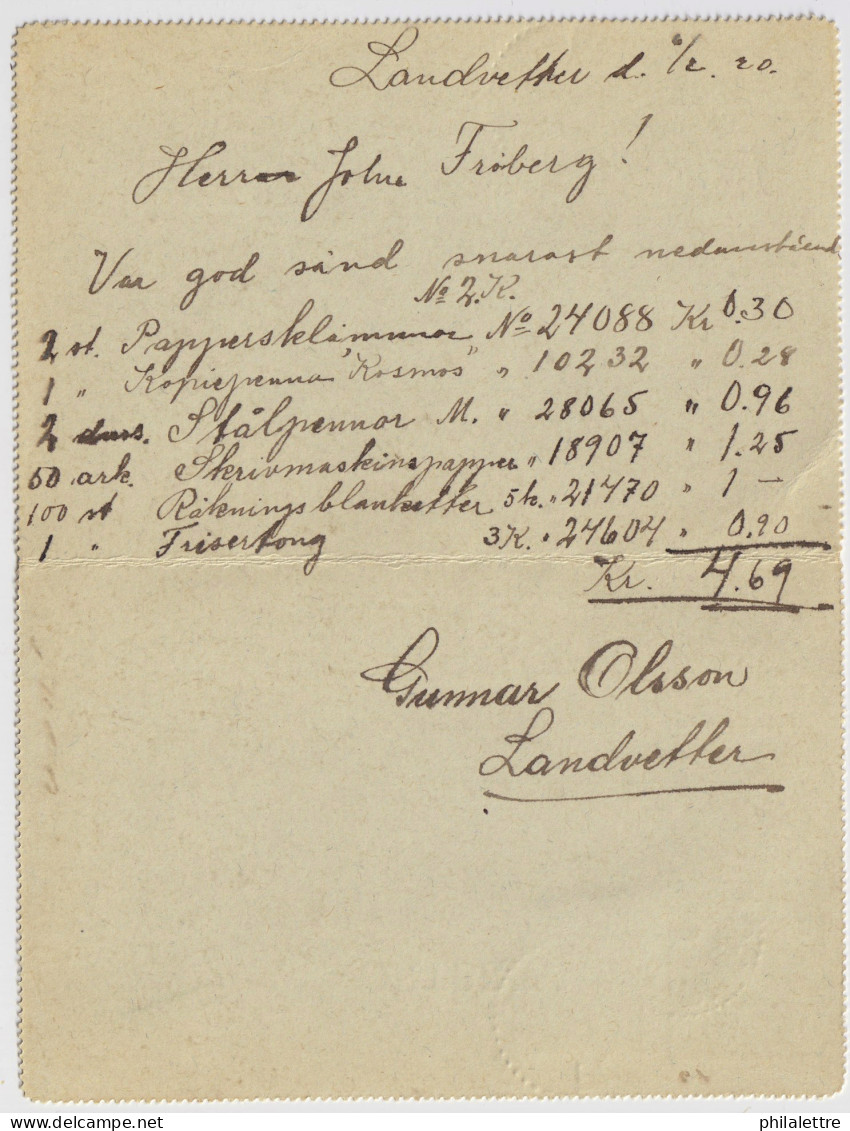 Landvetter d. 6/2. 20.
Herrn John Fröberg!
Var god sänd snarast nedanståend
No 2. K.
2 st. Pappersklämmor No 24088 Kr 0.30
1 " Kopiepenna "Kosmos" " 10232 " 0.28
2 duss. Stålpennor M. " 28065 " 0.96
50 ark. Skrivmaskinspapper " 18907 " 1.25
100 st Räkningsblanketter 5 k. " 21470 " 1 —
1 " Frisertong 3K. " 24604 " 0.90
Kr. 4.69
Gunnar Olsson
Landvetter
philalettre